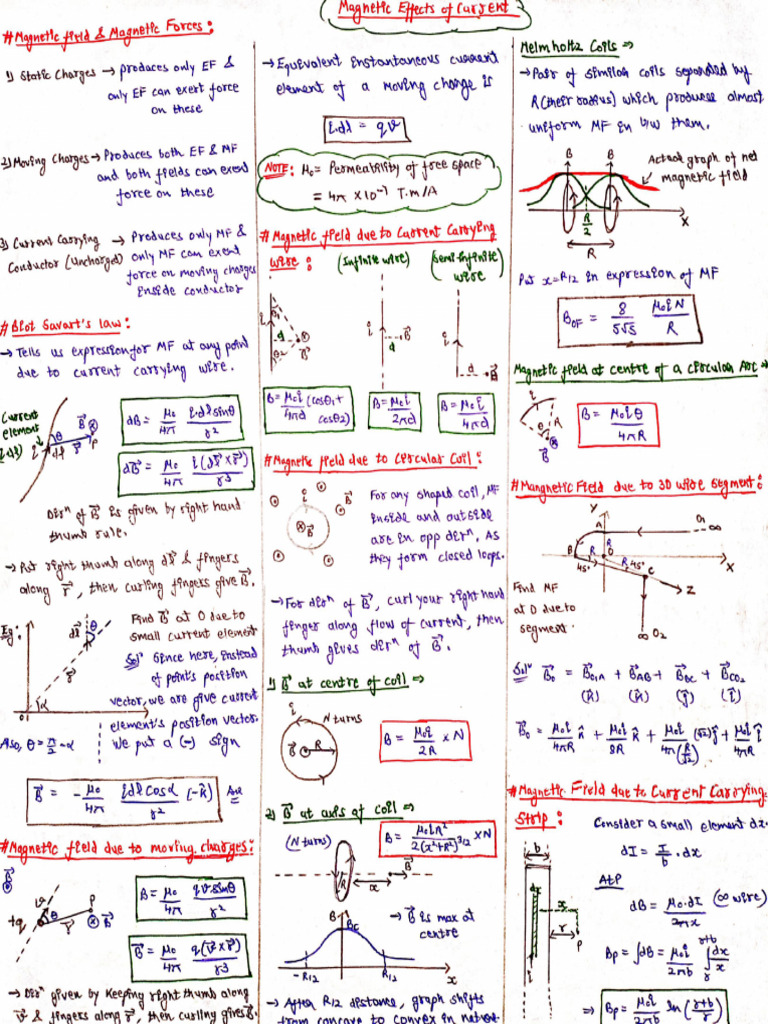 Magnetic Effects of Current
#Magnetic field & Magnetic Forces:
1) Static Charges → produces only EF &
only EF can exert force
on these
2) Moving Charges → Produces both EF & MF
and both fields can exert
force on these
3) Current Carrying → Produces only MF &
Conductor (Uncharged) only MF can exert
force on moving charges
inside conductor
#Biot Savart's law:
→ Tells us expression for MF at any point
due to current carrying wire.
Current
element
(idl)
i
dl
θ
r
P
B
dB = μ₀/4π idl sinθ/r²
dB⃗ = μ₀/4π i(dl⃗×r⃗)/r³
Dirⁿ of B⃗ is given by right hand
thumb rule.
→ Put right thumb along dl⃗ & fingers
along r⃗, then curling fingers give B⃗.
Eg:
dl⃗
θ
r⃗
α
Find B⃗ at O due to
small current element
Solⁿ Since here, instead
of point's position
vector, we are give current
element's position vector
we put a (-) sign
Also, θ = π/2 - α
B⃗ = - μ₀/4π idl cosα/r² (-k̂) Ans
#Magnetic field due to moving charges:
B⃗
v⃗
+q
θ
r⃗
P
B⃗
B = μ₀/4π qv sinθ/r²
B⃗ = μ₀/4π q(v⃗×r⃗)/r³
→ Dirⁿ given by keeping right thumb along
v⃗ & fingers along r⃗, then curling gives B⃗.
→ Equivalent instantaneous current
element of a moving charge is
i.dl = qv
NOTE: μ₀ = Permeability of free space
= 4π × 10⁻⁷ T.m/A
#Magnetic field due to Current Carrying
wire:
(Infinite wire)
(Semi infinite)
wire
i
d
θ2
B⃗
i
d
B⃗
i
d
B⃗
B = μ₀i/4πd (cosθ1 + cosθ2)
B = μ₀i/2πd
B = μ₀i/4πd
#Magnetic field due to Circular Coil:
i
B⃗
For any shaped coil, MF
inside and outside
are in opp dirⁿ, As
they form closed loops.
→ For dirⁿ of B⃗, curl your right hand
finger along flow of current, then
thumb gives dirⁿ of B⃗.
1) B⃗ at centre of coil ⇒
i
N turns
B⃗
R
B = μ₀i/2R × N
2) B⃗ at axis of coil ⇒
(N turns)
R
x
B⃗
B = μ₀iR²/2(x²+R²)^3/2 × N
B
Bc
-R/2
R/2
x
→ B⃗ is max at
centre
→ After R/2 distance, graph shifts
from concave to convex in nature
Helmholtz Coils ⇒
→ Pair of similar coils separated by
R (their radius) which produce almost
uniform MF in b/w them.
B
B
Actual graph of net
magnetic field
R/2
R
X
Put x = R/2 in expression of MF
B_OF = 8/5√5 μ₀iN/R
Magnetic field at centre of a Circular Arc ⇒
i
R
θ
B⃗
B = μ₀iθ/4πR
#Mangnetic Field due to 3D wire segment:
Y
A
O1
∞
B
R
R
O
R
45°
45°
C
X
Z
∞ O2
Find MF
at O due to
segment.
Solⁿ B⃗₀ = B⃗O1A + B⃗AB + B⃗BC + B⃗CO2
(k̂) (k̂) (ĵ) (î)
B⃗₀ = μ₀i/4πR k̂ + μ₀i/8R k̂ + μ₀i/4π(R/√2) (√2)ĵ + μ₀i/4πR î
#Magnetic Field due to Current Carrying
Strip:
b
dI
i
x
r
P
Consider a small element dx.
dI = I/b . dx
At P
dB = μ₀.dI/2πx (∞ wire)
Bp = ∫dB = μ₀i/2πb ∫ᵣ^(r+b) dx/x
⇒ Bp = μ₀i/2πb ln(r+b/r)